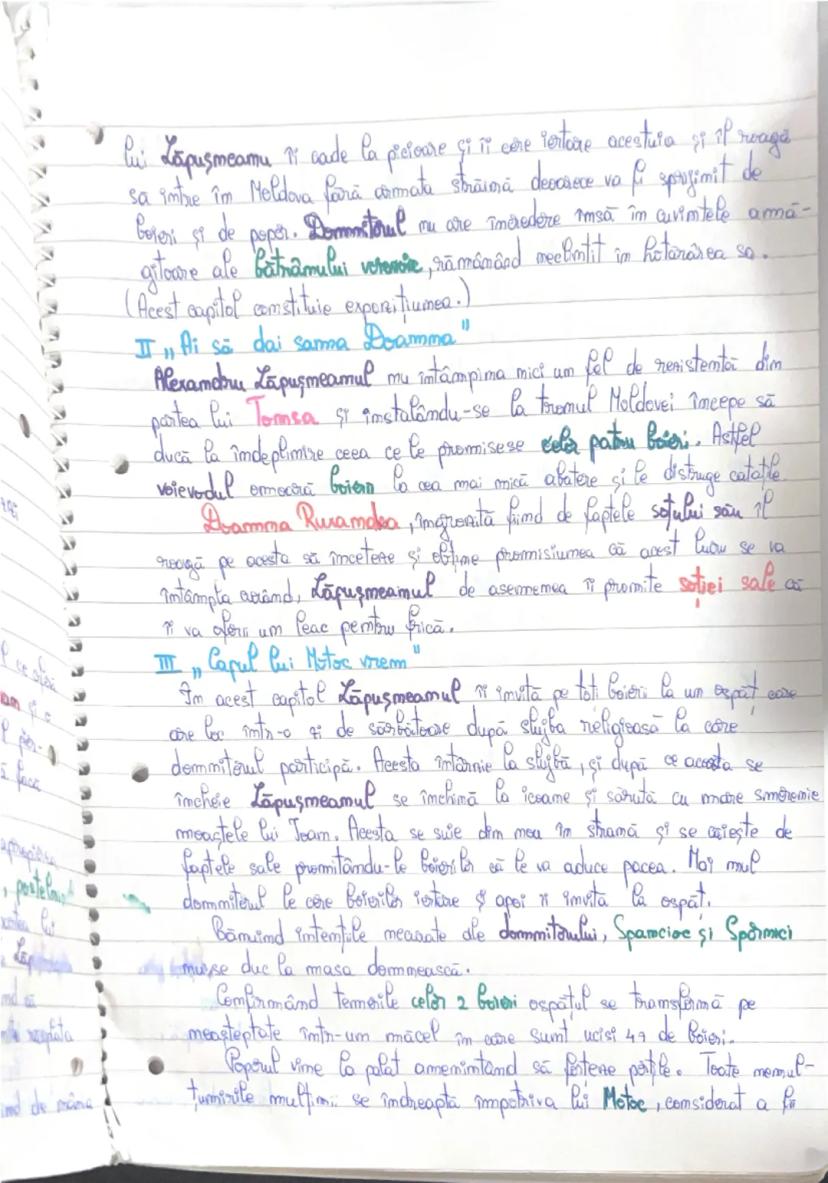 lui Lăpușneanu îi cade la picioare și îi cere iertare acestuia și îl roagă
sa intre în Moldova fără armata străină deoarece va fi sprijinit de
boieri și de popor. Domnitorul nu are încredere însă în cuvintele amă-
gitoare ale bătrânului vornic, rămânând neclintit în hotărârea sa.
(Acest capitol constituie expozițiunea.)
II „Ai să dai sama Doamna"
Alexandru Lăpușneanul nu întâmpina nici un fel de rezistență din
partea lui Tomsa și instalându-se la tronul Moldovei începe să
ducă la îndeplinire ceea ce le promisese celor patru boieri. Astfel
voievodul omoară boieri la cea mai mică abatere și le distruge cetatile
Doamna Ruxandra, îngrozită fiind de faptele soțului său îl
roagă pe acesta să înceteze și obține promisiunea că acest lucru se va
întâmpla curând, Lăpușneanul de asemenea îi promite soției sale că
îi va oferi un leac pentru frică.
III „Capul lui Motoc vrem"
În acest capitol Lăpușneanul îi invită pe toti boierii la un ospăț care
are loc într-o zi de sărbătoare după slujba religioasă la care
domnitorul participă. Acesta întârzie la slujbă, și după ce aceasta se
încheie Lăpușneanul se închină la icoane și sărută cu mare smerenie
moaștele lui Ioan. Acesta se suie din nou în strană și se căiește de
faptele sale promitându-le boierilor că le va aduce pacea. Mai mul
domnitorul le cere boierilor iertare și apoi îi invita la ospăt.
Bănuind intentiile necurate ale domnitorului, Spancioc și Spormici
nu se duc la masa domnească.
Confirmând temerile celor 2 boieri ospățul se transformă pe
neașteptate într-un măcel în care sunt ucisi 47 de boieri.
Poporul vine la palat amenintand să forteze portile. Toate nemul-
țumirile mulțimii se îndreaptă împotriva lui Motoc, considerat a fi